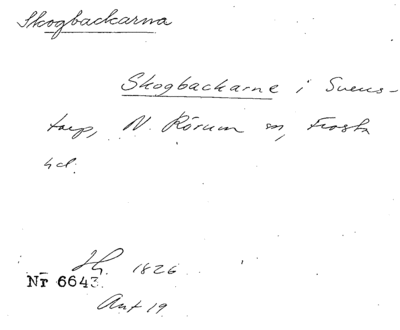 Skogbackarna
Skogbackarne i Svens-
torp, N. Rörum sn, Frosta
hd.
1826
Nr 6643.
Ant 19